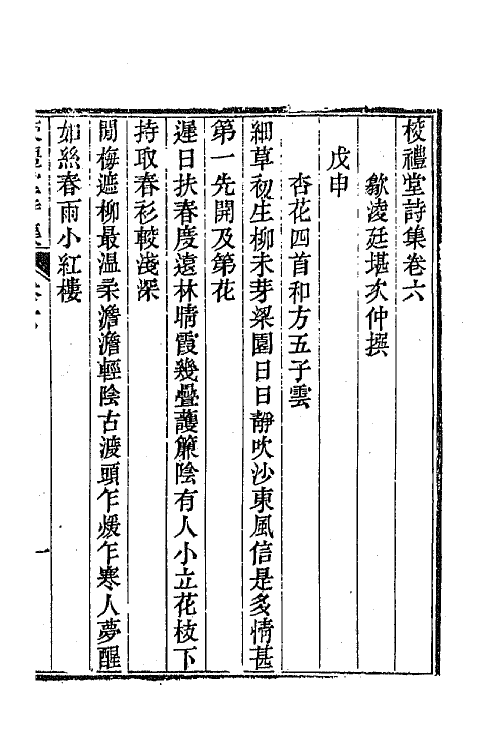 棱禮堂詩集卷六
歙淩廷堪次仲撰
戊申
杏花四首和方五子雲
細草初生柳未芽梁園日日靜吹沙東風信是多情甚
第一先開及第花
遲日扶春度遠林晴霞幾疊護簾陰有人小立花枝下
持取春衫較淺深
閒梅遮柳最温柔澹澹輕陰古渡頭乍煖乍寒人夢醒
如絲春雨小紅樓
一